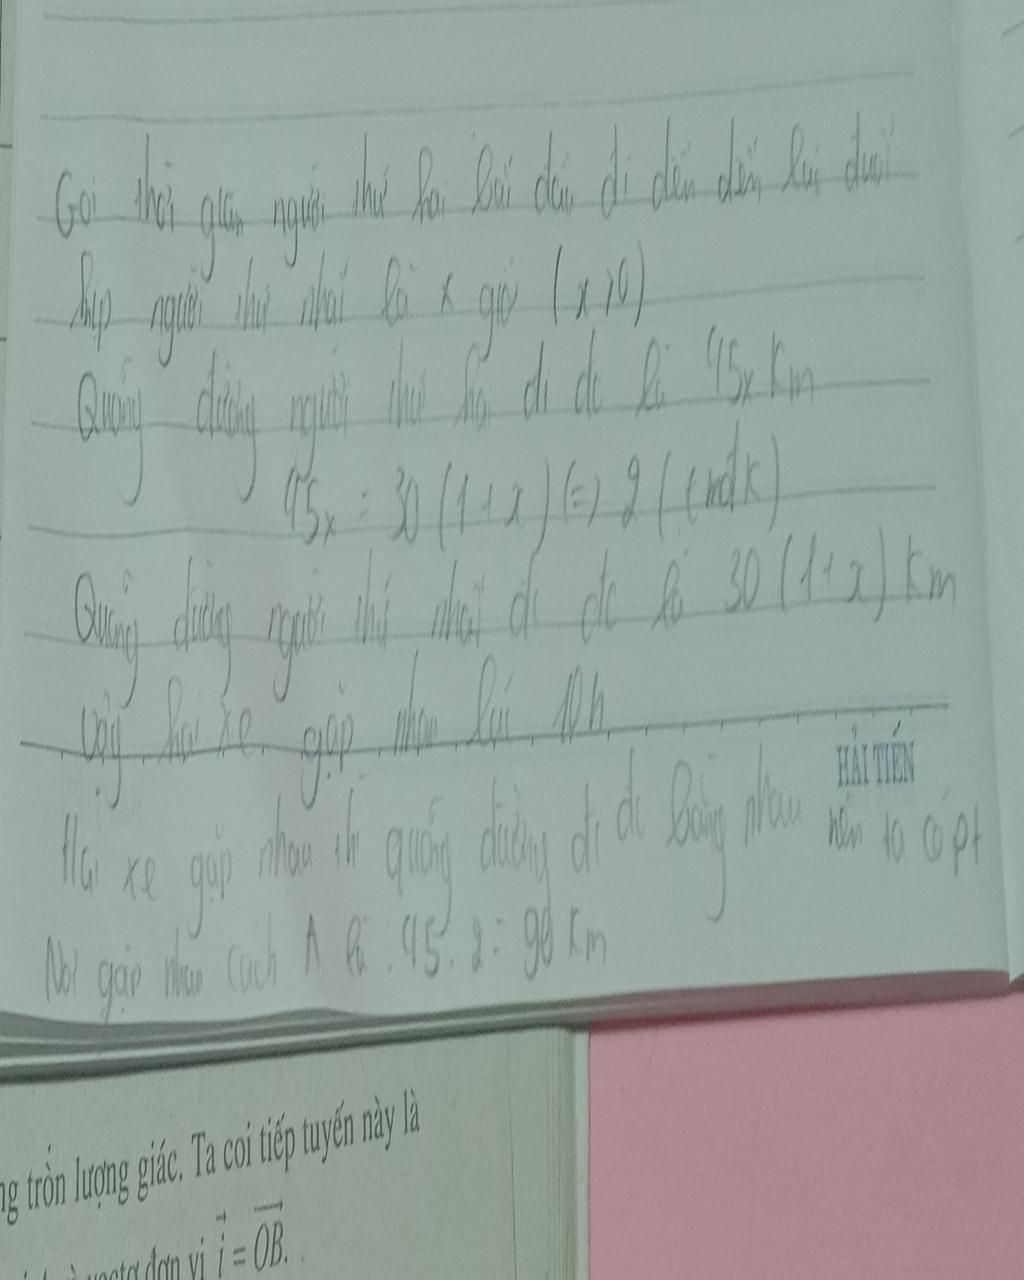 Gọi thời gian người thứ hai bắt đầu đi đến đến lúc đuổi
kịp người thứ nhất là x giờ (x>0)
Quãng đường người thứ hai đi đc là 45x Km
45x = 30 (1+x) (=) 2 ( tmđk)
Quãng đường người thứ nhất đi đc là 30 (1+x) Km
Vậy hai xe gặp nhau lúc 10h
HẢI TIẾN
Hai xe gặp nhau thì quãng đường đi đc bằng nhau nên ta có pt
Nơi gặp nhau cách A là : 45. 2 = 90 Km
ng tròn lượng giác. Ta coi tiếp tuyến này là
vectơ đơn vị i = OB.